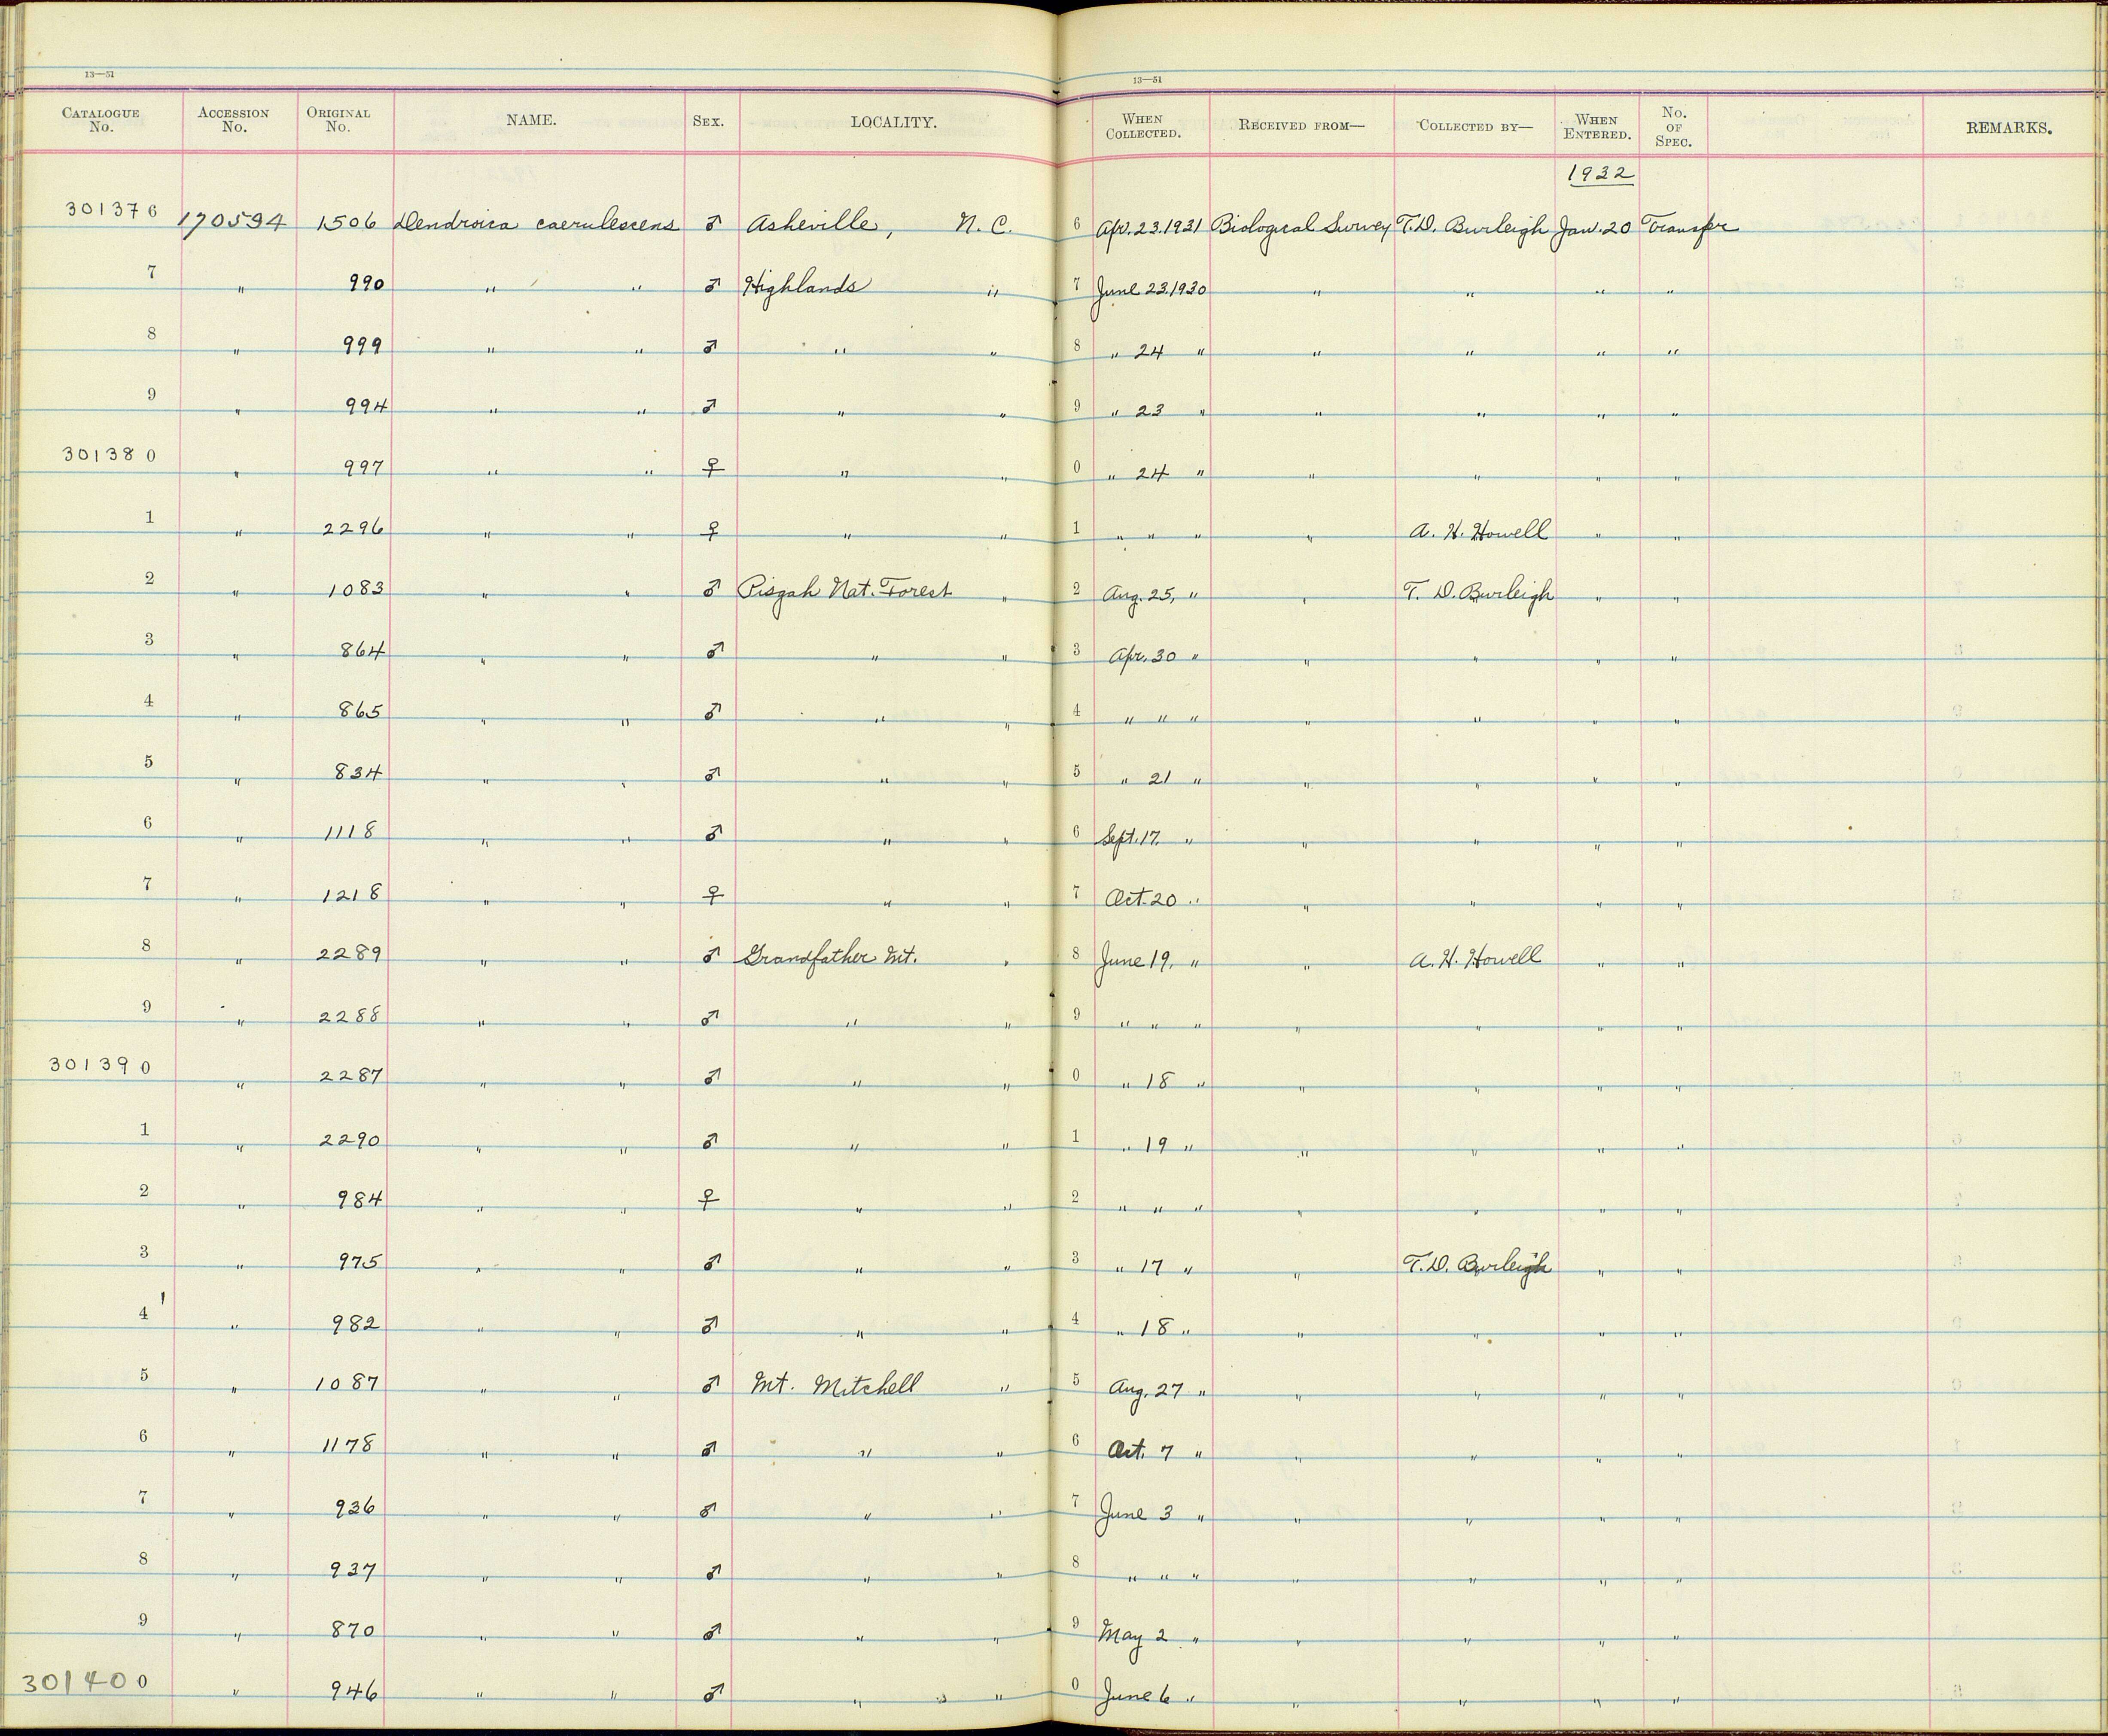 13—51 13—51
CATALOGUE No. ACCESSION No. ORIGINAL No. NAME. SEX. LOCALITY. WHEN COLLECTED. RECEIVED FROM— COLLECTED BY— WHEN ENTERED. No. OF SPEC. REMARKS.
1932
301376 170594 1506 Dendroica caerulescens ♂ Asheville, N. C. 6 Apr. 23.1931 Biological Survey T. D. Burleigh Jan. 20 Transfer
7 " 990 " " ♂ Highlands " 7 June 23.1930 " " " "
8 " 999 " " ♂ " " 8 " 24 " " " " "
9 " 994 " " ♂ " " 9 " 23 " " " " "
301380 " 997 " " ♀ " " 0 " 24 " " " " "
1 " 2296 " " ♀ " " 1 " " " " A. H. Howell " "
2 " 1083 " " ♂ Pisgah Nat. Forest " 2 Aug. 25, " " T. D. Burleigh " "
3 " 864 " " ♂ " " 3 Apr. 30 " " " " "
4 " 865 " " ♂ " " 4 " " " " " " "
5 " 834 " " ♂ " " 5 " 21 " " " " "
6 " 1118 " " ♂ " " 6 Sept. 17. " " " " "
7 " 1218 " " ♀ " " 7 Oct. 20 " " " " "
8 " 2289 " " ♂ Grandfather Mt. " 8 June 19, " " A. H. Howell " "
9 " 2288 " " ♂ " " 9 " " " " " " "
301390 " 2287 " " ♂ " " 0 " 18 " " " " "
1 " 2290 " " ♂ " " 1 " 19 " " " " "
2 " 984 " " ♀ " " 2 " " " " " " "
3 " 975 " " ♂ " " 3 " 17 " " T. D. Burleigh " "
4 " 982 " " ♂ " " 4 " 18 " " " " "
5 " 1087 " " ♂ Mt. Mitchell " 5 Aug. 27 " " " " "
6 " 1178 " " ♂ " " 6 Oct. 7 " " " " "
7 " 936 " " ♂ " " 7 June 3 " " " " "
8 " 937 " " ♂ " " 8 " " " " " " "
9 " 870 " " ♂ " " 9 May 2 " " " " "
301400 " 946 " " ♂ " " " 0 June 6 " " " " "